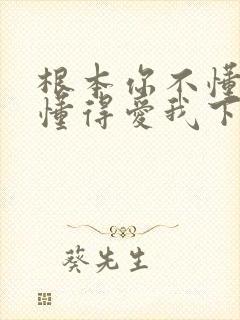 根本你不懂
懂得爱我下
葵先生